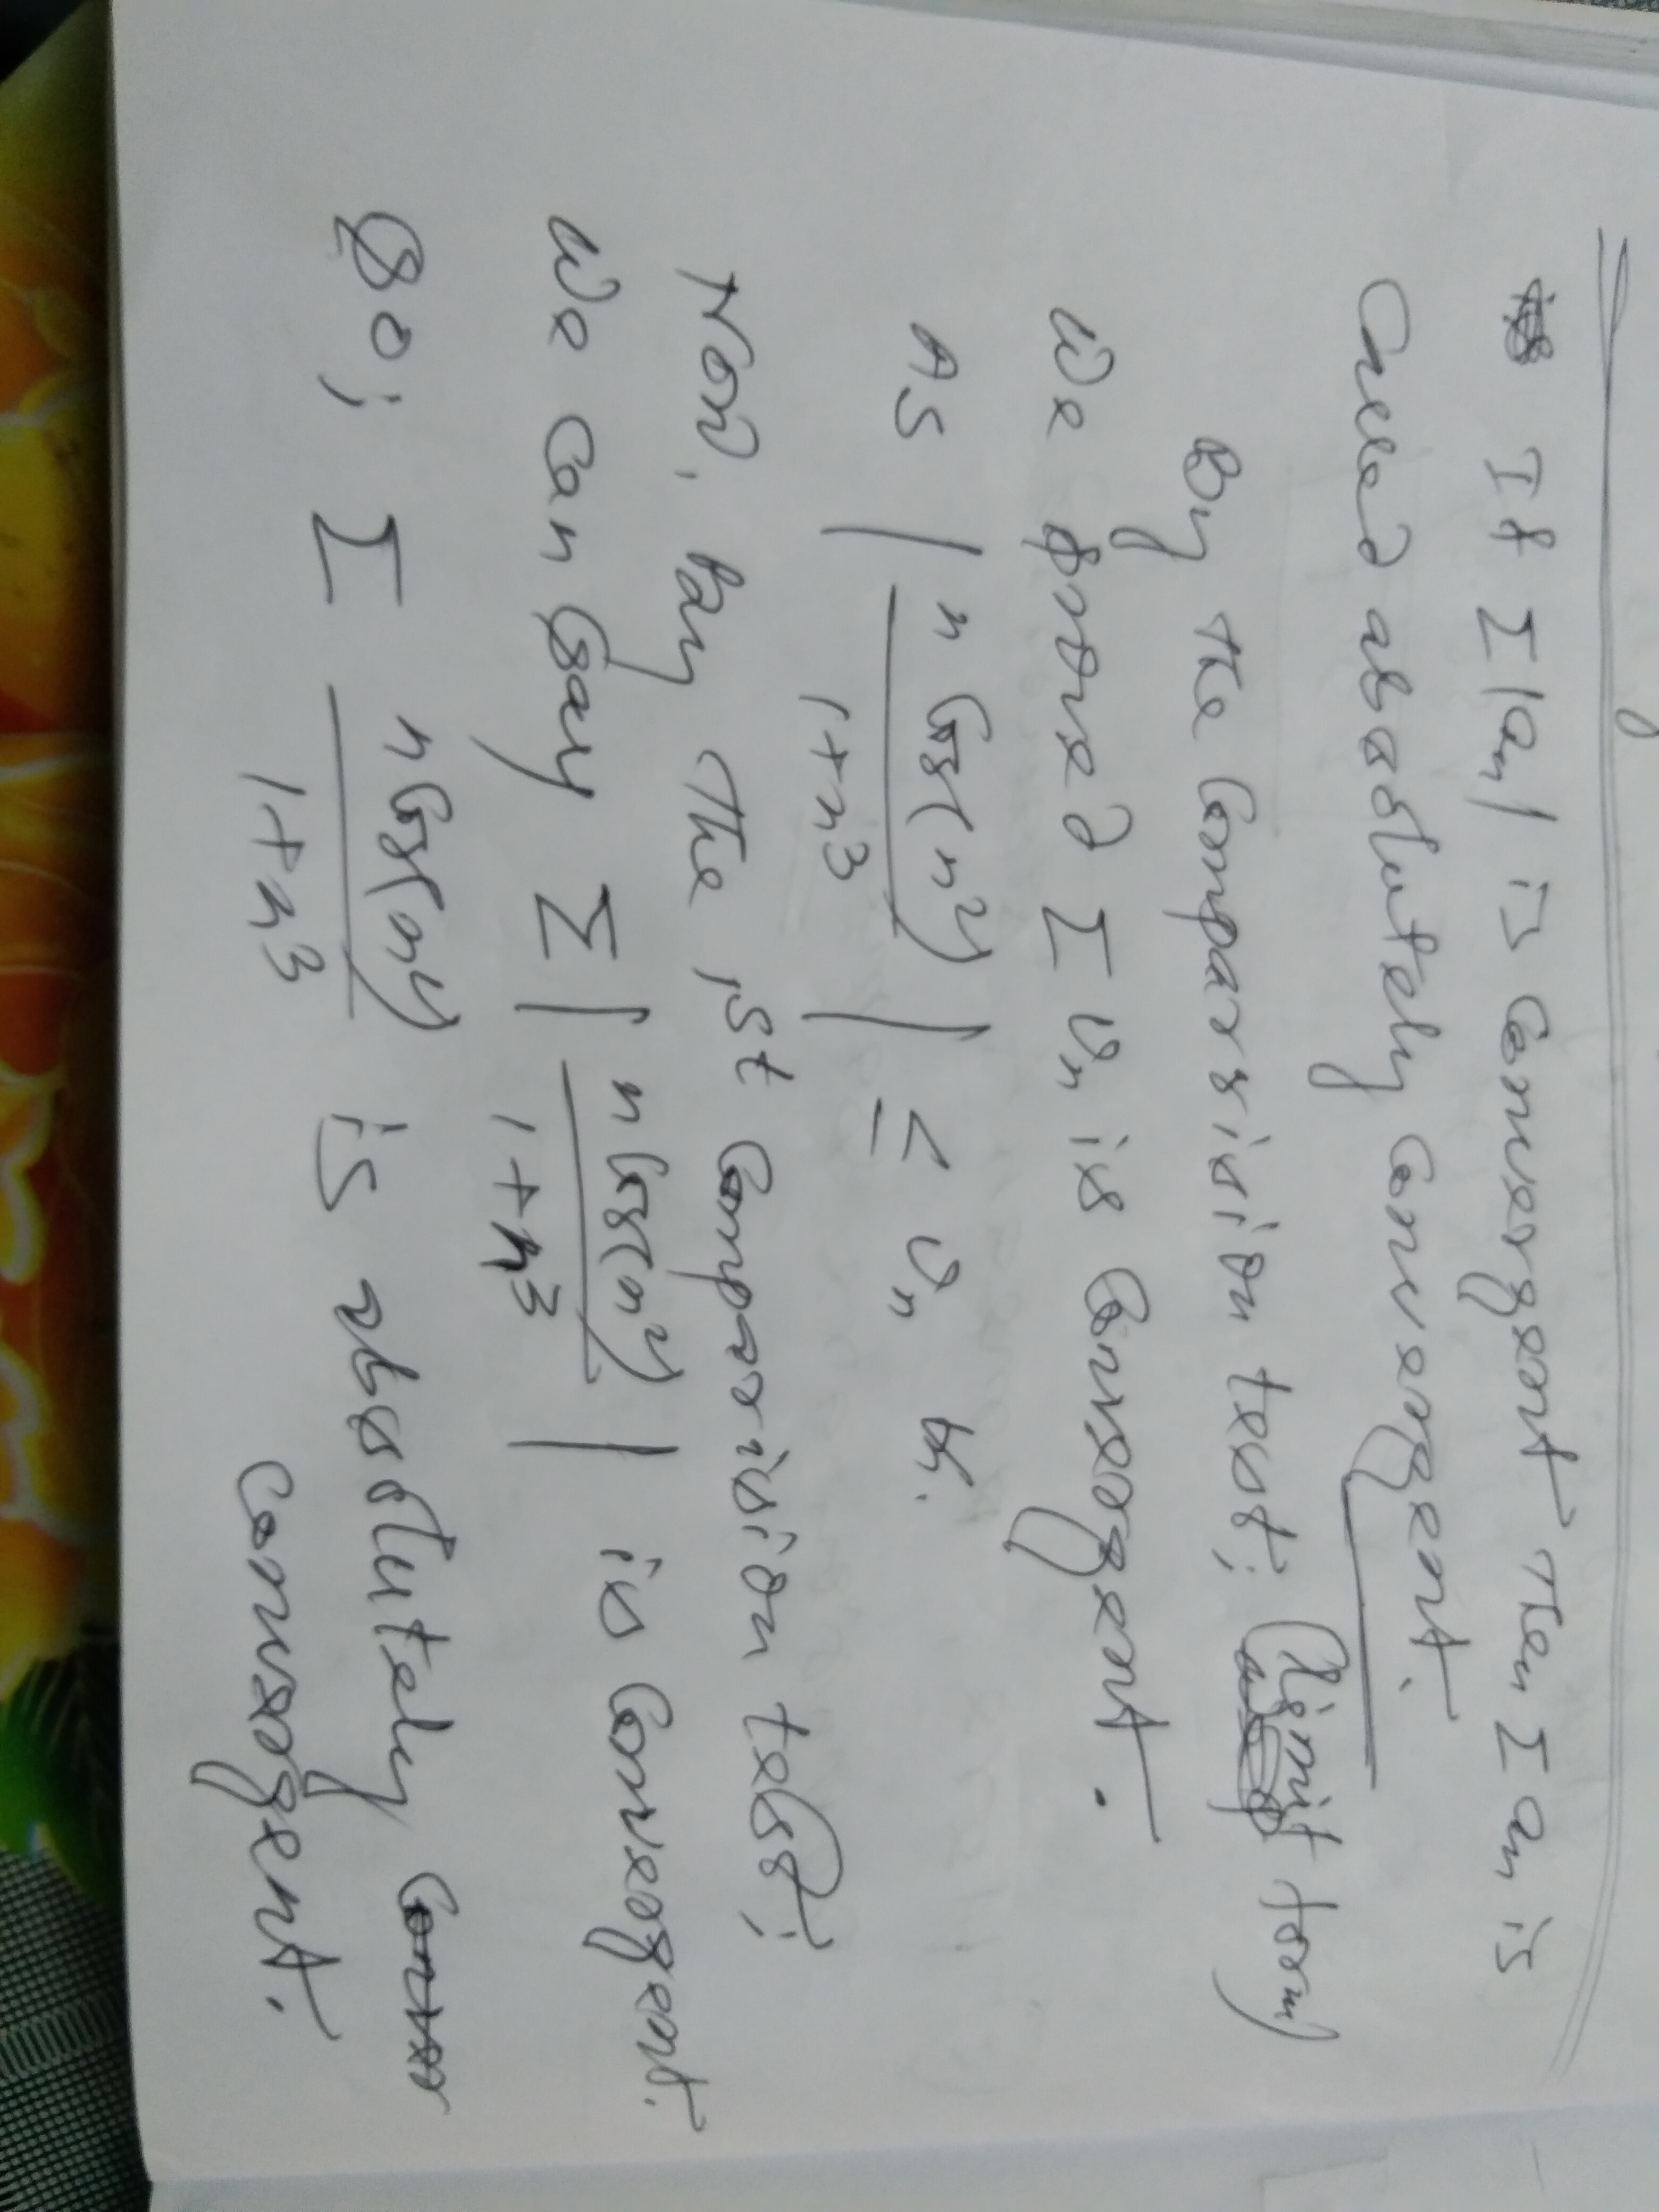 If Σ|aₙ| is convergent then Σ aₙ is
called absolutely convergent.
By the comparision test; (limit form)
We proved Σ vₙ is convergent.
As | n cos(n²) / 1+n³ | ≤ vₙ ∀n.
Now, by the 1st comparision test;
We can say Σ | n cos(n²) / 1+n³ | is convergent.
So; Σ n cos(n²) / 1+n³ is absolutely
convergent.